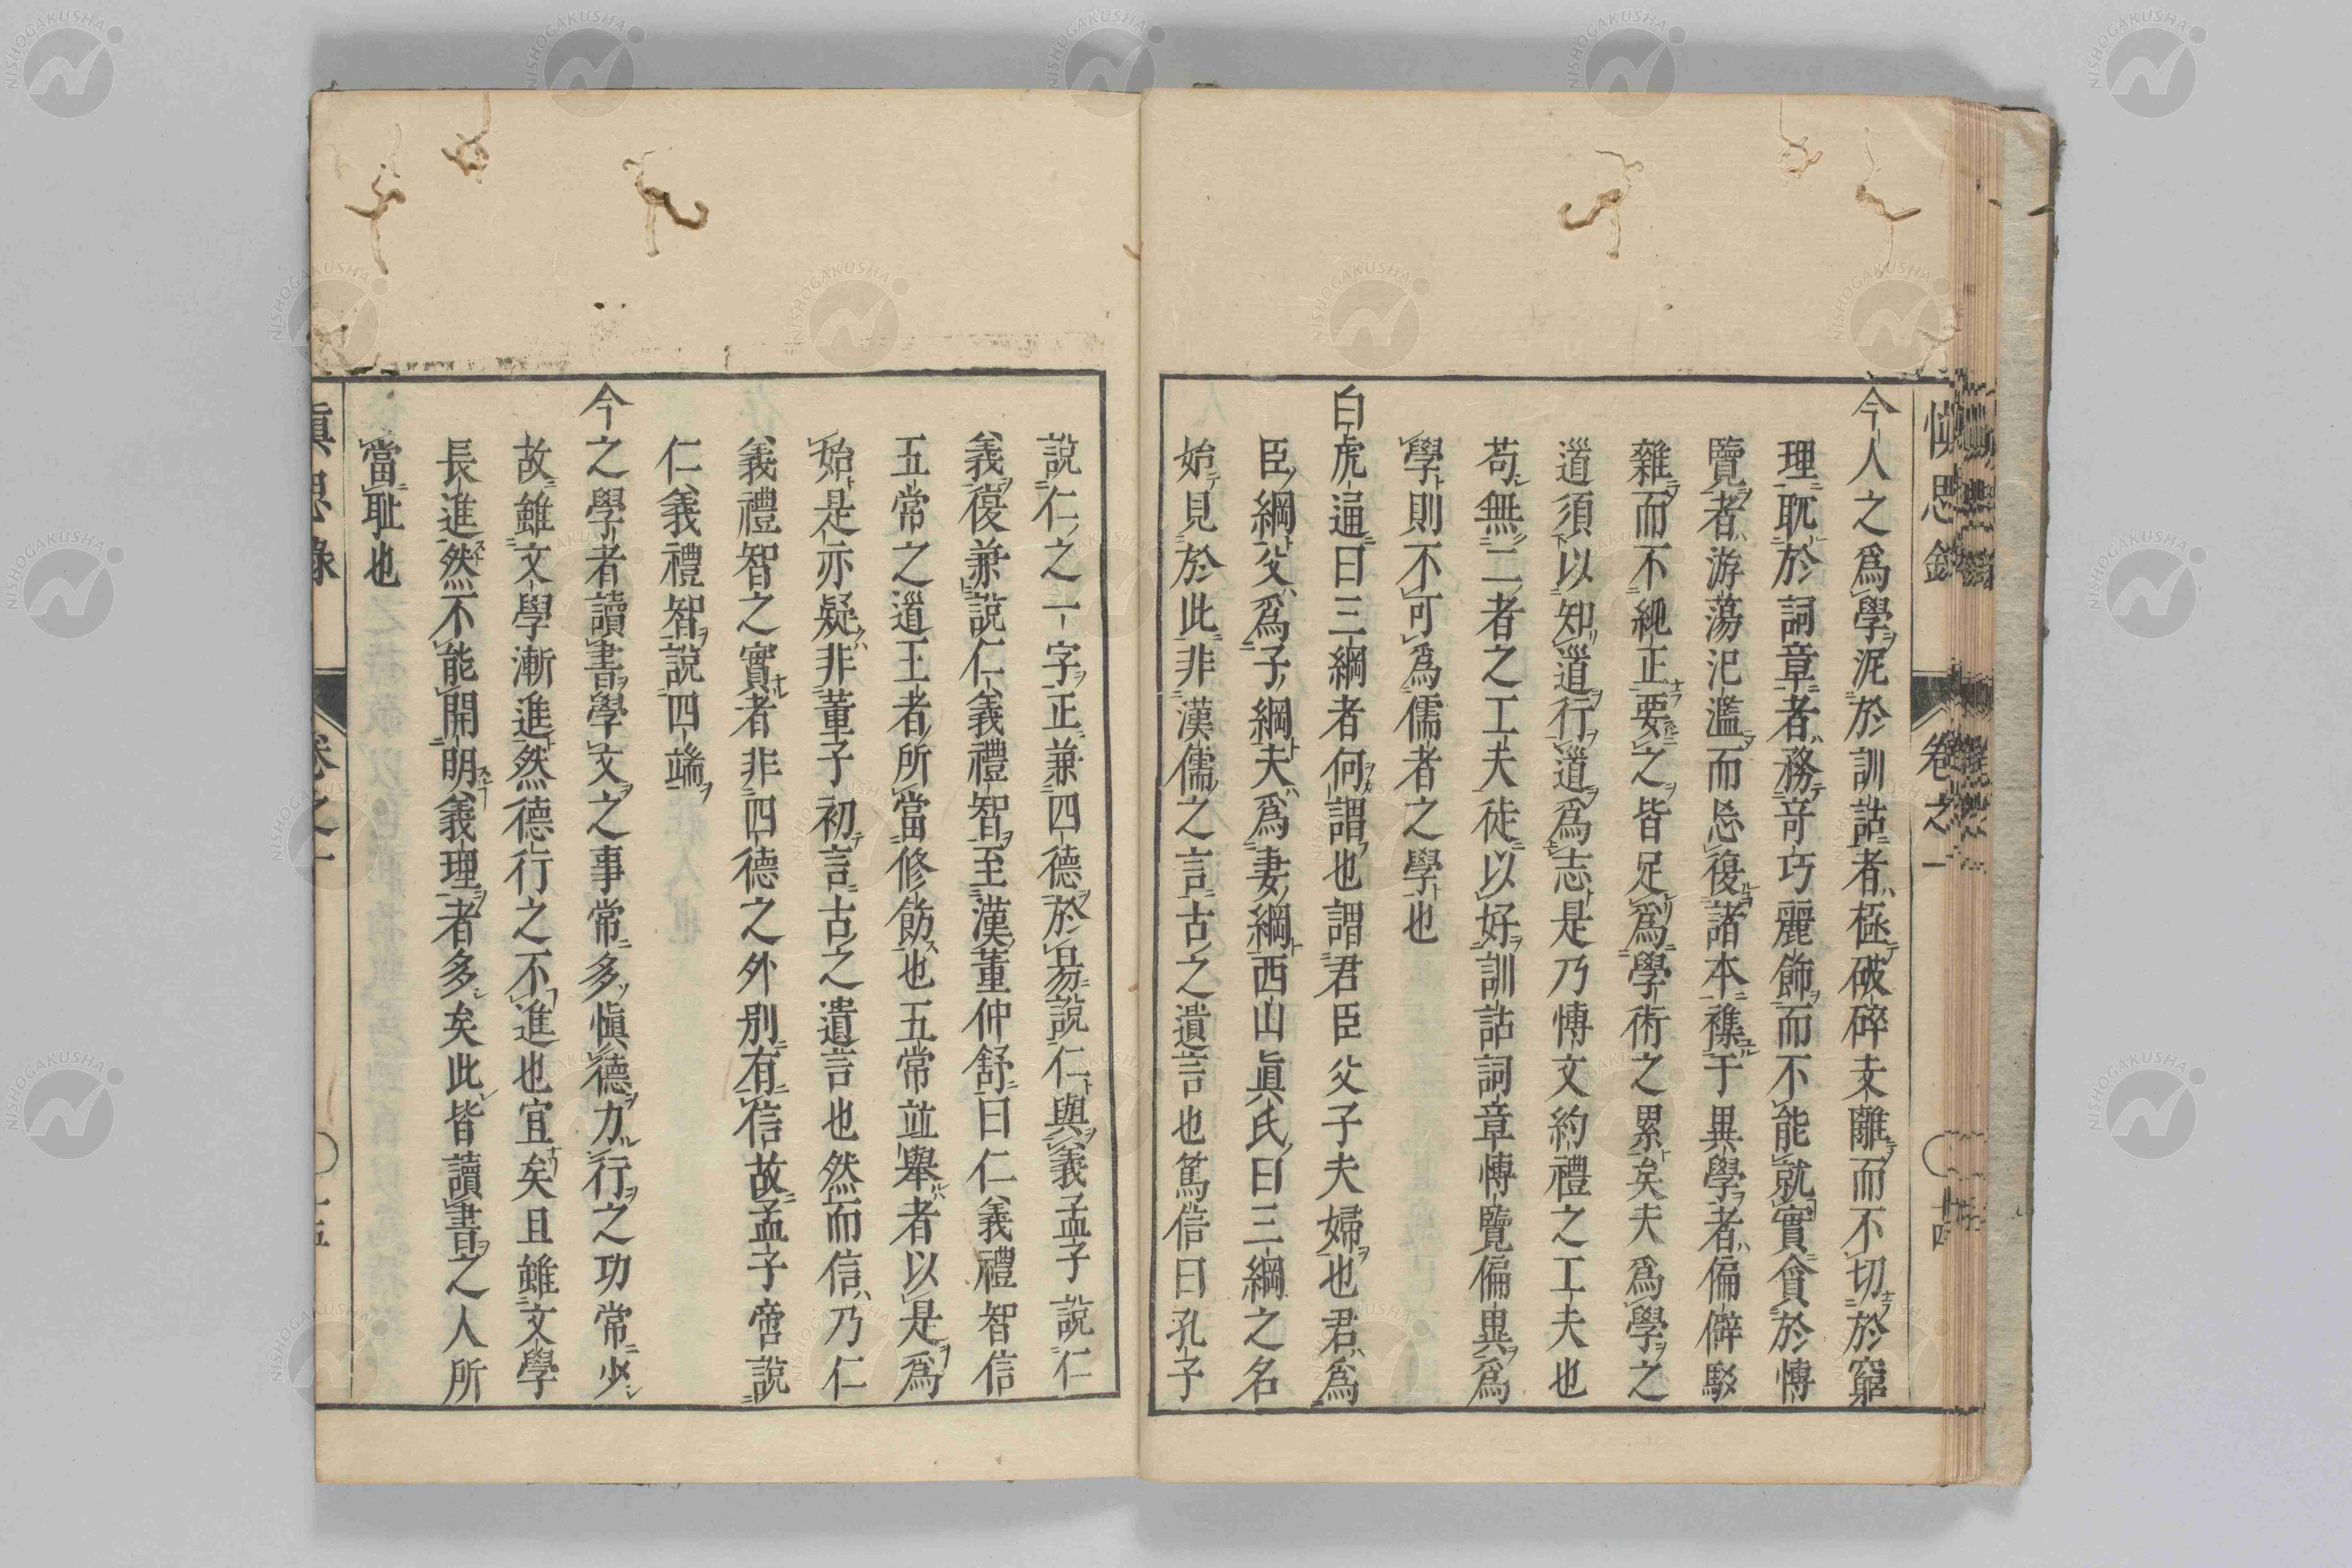 慎思録 卷之一 ○廿四
今人之爲學泥於訓詁者極破碎支離而不切於窮
理耽於詞章者務竒巧麗飾而不能就實貪於愽
覽者游蕩汜濫而忘復諸本襍于異學者偏僻駁
雜而不純正要之皆足爲學術之累矣夫爲學之
道須以知道行道爲志是乃愽文約禮之工夫也
苟無二者之工夫徒以好訓詁詞章愽覽偏異爲
學則不可爲儒者之學也
白虎通曰三綱者何謂也謂君臣父子夫婦也君爲
臣綱父爲子綱夫爲妻綱西山眞氏曰三綱之名
始見於此非漢儒之言古之遺言也篤信曰孔子
說仁之一字正兼四德於易說仁與義孟子說仁
義復兼說仁義禮智至漢董仲舒曰仁義禮智信
五常之道王者所當修飭也五常並舉者以是爲
始是亦疑非董子初言古之遺言也然而信乃仁
義禮智之實者非四德之外別有信故孟子啻說
仁義禮智說四端
今之學者讀書學文之事常多愼德力行之功常少
故雖文學漸進然德行之不進也宜矣且雖文學
長進然不能開明義理者多矣此皆讀書之人所
當耻也
愼思錄 卷之一 ○廿五